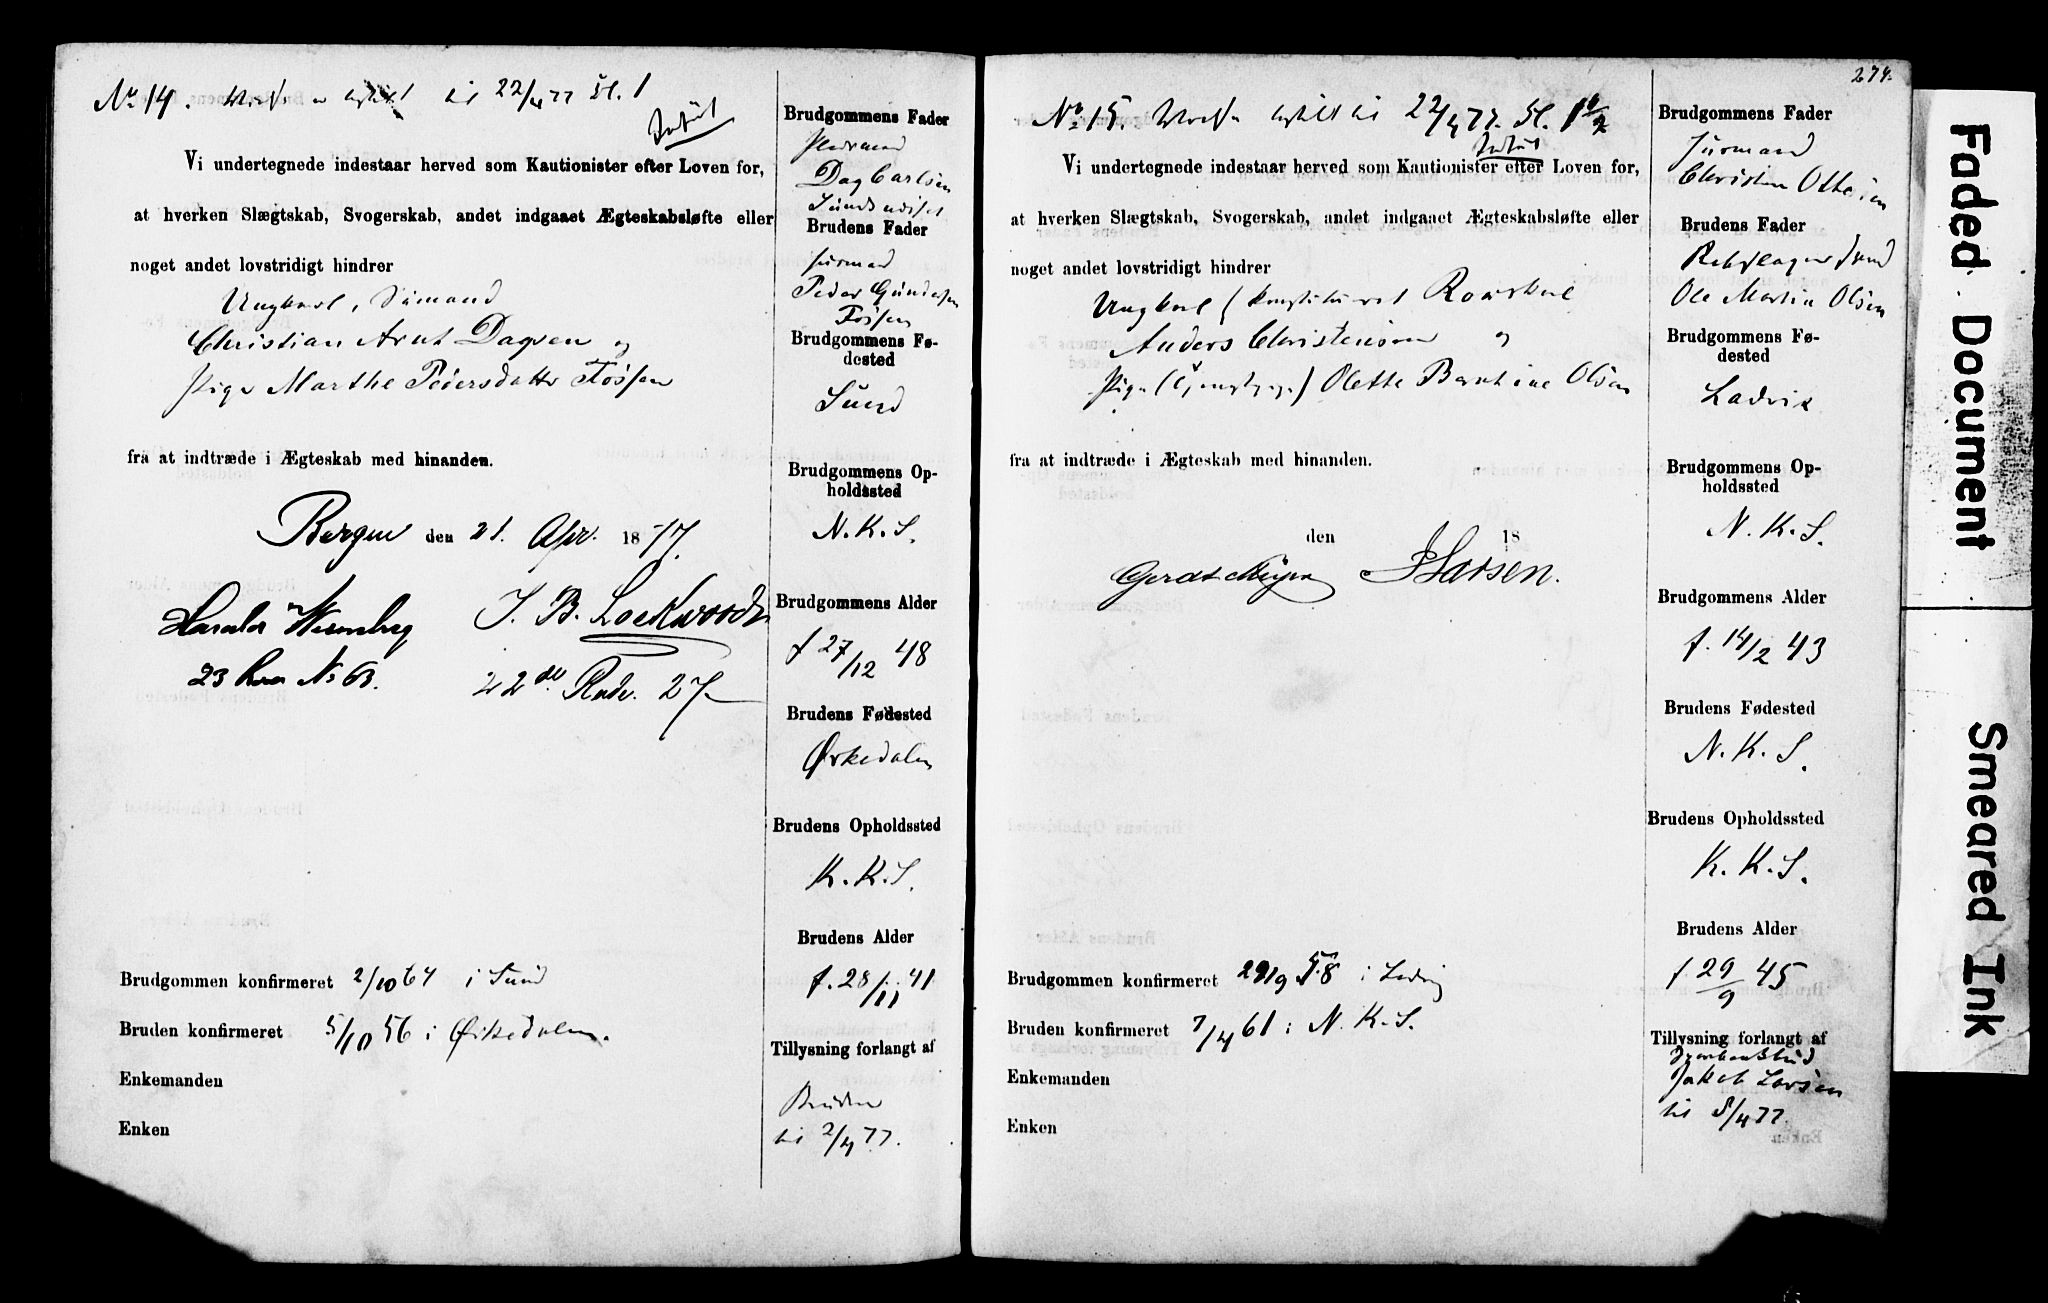 No 14. til 22/4 77 Kl. 1
Vi undertegnede indestaar herved som Kautionister efter Loven for,
at hverken Slægtskab, Svogerskab, andet indgaaet Ægteskabsløfte eller
noget andet lovstridigt hindrer
Ungkarl, Sømand
Christian Arnt Dagsen og
Pige Marthe Pedersdatter Fossen
fra at indtræde i Ægteskab med hinanden.
Bergen den 21. Apr. 1877.
Harald J. B. Lockwood
23 Rode No 63. 22de Rode. 27
Brudgommen konfirmeret 2/10 64 i Sund
Bruden konfirmeret 5/10 56 i Ørkedalen.
Enkemanden
Enken
Brudgommens Fader
Dag Carlsen
Brudens Fader
Peder
Fossen
Brudgommens Fø-
dested
Sund
Brudgommens Op-
holdssted
N. K. S.
Brudgommens Alder
f 27/12 48
Brudens Fødested
Ørkedalen
Brudens Opholdssted
K. K. S.
Brudens Alder
f. 28/11 41
Tillysning forlangt af
Bruden
til 2/4 77.
274.
No 15. til 22/4 77. Kl. 1 1/2
Vi undertegnede indestaar herved som Kautionister efter Loven for,
at hverken Slægtskab, Svogerskab, andet indgaaet Ægteskabsløfte eller
noget andet lovstridigt hindrer
Ungkarl
Anders Christensen og
Pige Olette Berntine Olsen
fra at indtræde i Ægteskab med hinanden.
den 18
Gerdt Meyer J Larsen.
Brudgommen konfirmeret 58 i Ladvig
Bruden konfirmeret 7/4 61 i N. K. S.
Enkemanden
Enken
Brudgommens Fader
Christen
Brudens Fader
Ole Martin Olsen
Brudgommens Fø-
dested
Ladvik
Brudgommens Op-
holdssted
N. K. S.
Brudgommens Alder
f. 14/2 43
Brudens Fødested
N. K. S.
Brudens Opholdssted
K. K. S.
Brudens Alder
f. 29/9 45
Tillysning forlangt af
Jakob Larsen
til 8/4 77.
Faded Document
Smeared Ink